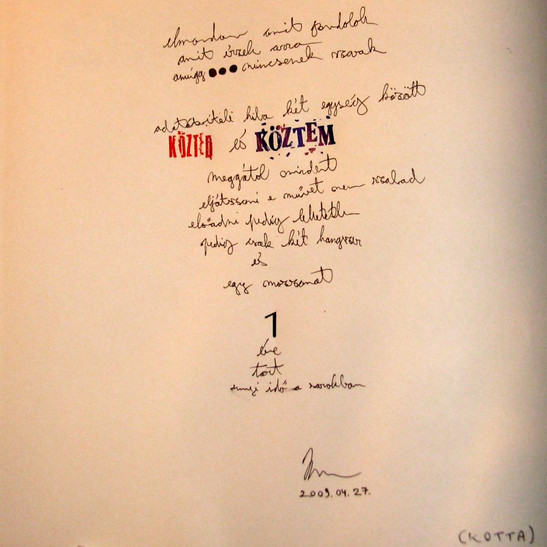 elmondom amit gondolok
amit érzek arra
amúgy ●●● nincsenek szavak
adatátviteli hiba két egység között
KÖZTED és KÖZTEM
meggátol mindent
eljátszani e művet nem szabad
előadni pedig lehetetlen
pedig csak két hangszer
és
egy mozzanat
1
éve
tart
ennyi idő a sarokban
2009.04.27.
(KOTTA)